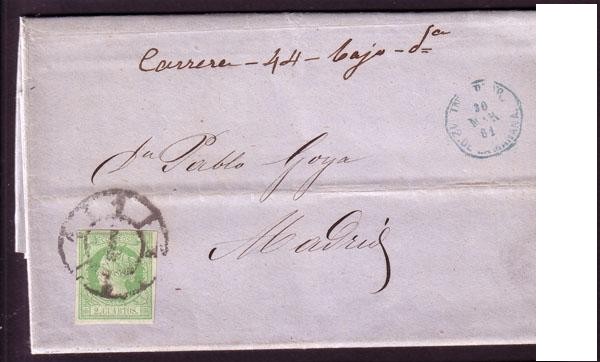 Carrera - 44 - bajo - dª
20
MAR
61
DE LA MAÑANA.
Pablo Goya
Madrid
2. CUARTOS.